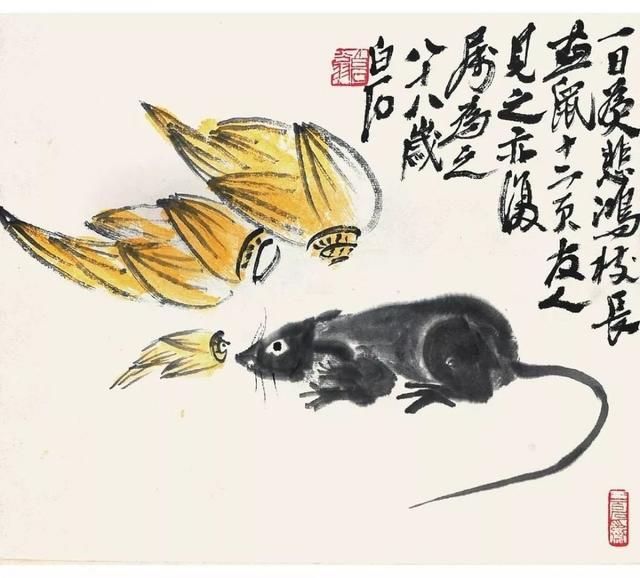 一日為悲鴻校長
畫鼠十二頁友人
見之亦復
屬為之
八十八歲
白石